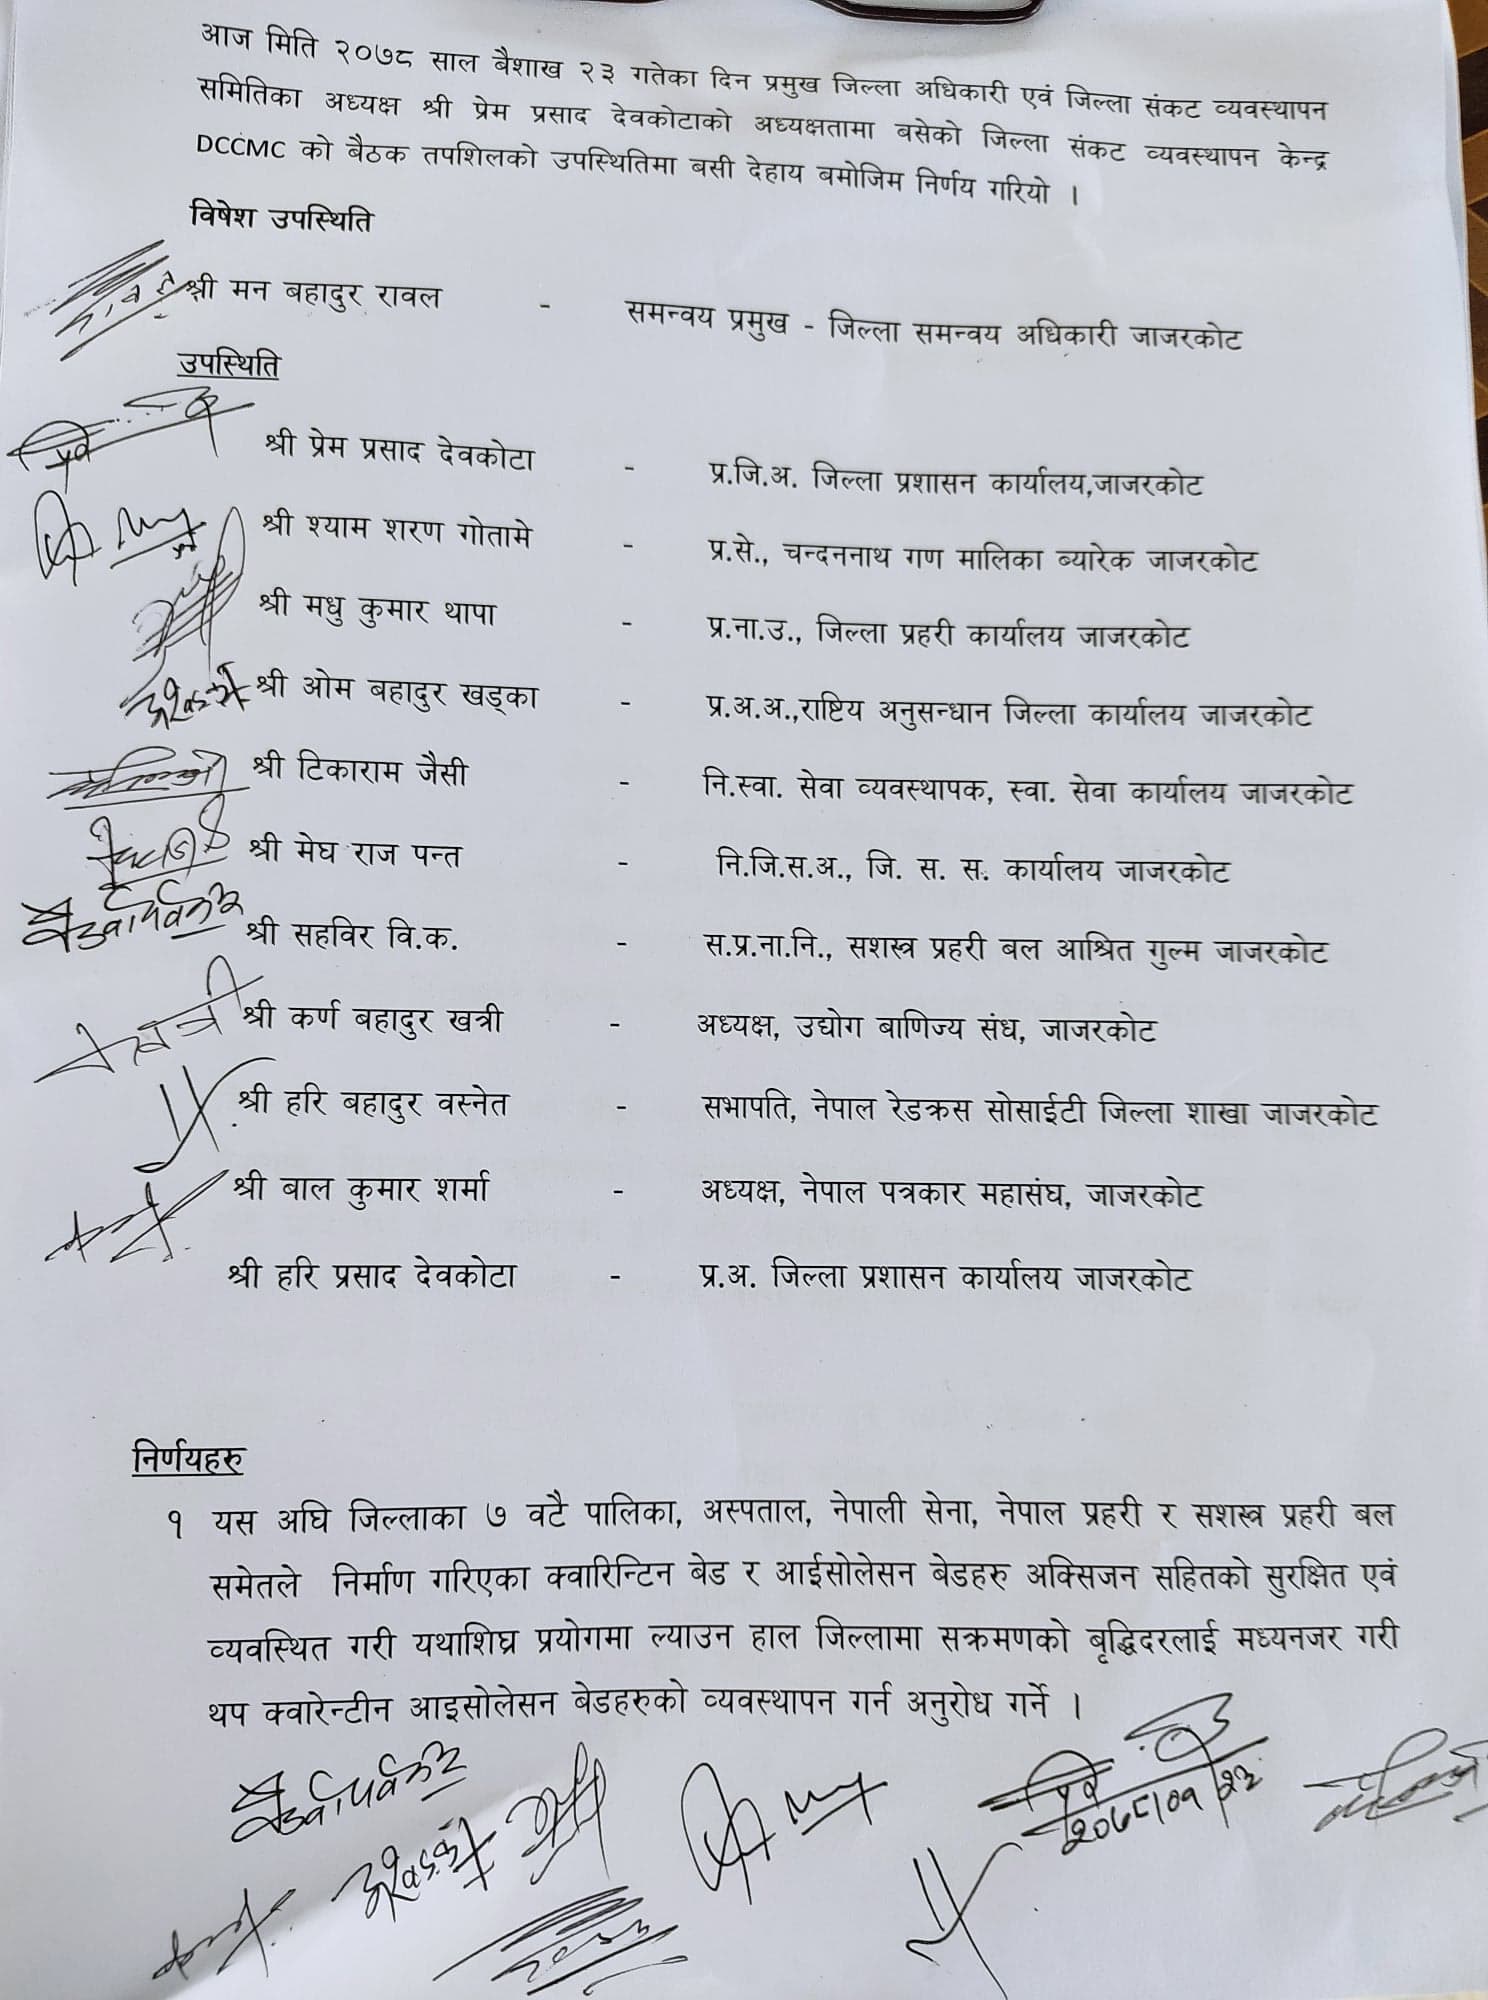 आज मिति २०७८ साल बैशाख २३ गतेका दिन प्रमुख जिल्ला अधिकारी एवं जिल्ला संकट व्यवस्थापन
समितिका अध्यक्ष श्री प्रेम प्रसाद देवकोटाको अध्यक्षतामा बसेको जिल्ला संकट व्यवस्थापन केन्द्र
DCCMC को बैठक तपशिलको उपस्थितिमा बसी देहाय बमोजिम निर्णय गरियो ।
विषेश उपस्थिति
श्री मन बहादुर रावल - समन्वय प्रमुख - जिल्ला समन्वय अधिकारी जाजरकोट
उपस्थिति
श्री प्रेम प्रसाद देवकोटा - प्र.जि.अ. जिल्ला प्रशासन कार्यालय,जाजरकोट
श्री श्याम शरण गोतामे - प्र.से., चन्दननाथ गण मालिका ब्यारेक जाजरकोट
श्री मधु कुमार थापा - प्र.ना.उ., जिल्ला प्रहरी कार्यालय जाजरकोट
श्री ओम बहादुर खड्का - प्र.अ.अ.,राष्टिय अनुसन्धान जिल्ला कार्यालय जाजरकोट
श्री टिकाराम जैसी - नि.स्वा. सेवा व्यवस्थापक, स्वा. सेवा कार्यालय जाजरकोट
श्री मेघ राज पन्त - नि.जि.स.अ., जि. स. स. कार्यालय जाजरकोट
श्री सहविर वि.क. - स.प्र.ना.नि., सशस्त्र प्रहरी बल आश्रित गुल्म जाजरकोट
श्री कर्ण बहादुर खत्री - अध्यक्ष, उद्योग बाणिज्य संध, जाजरकोट
श्री हरि बहादुर वस्नेत - सभापति, नेपाल रेडक्रस सोसाईटी जिल्ला शाखा जाजरकोट
श्री बाल कुमार शर्मा - अध्यक्ष, नेपाल पत्रकार महासंघ, जाजरकोट
श्री हरि प्रसाद देवकोटा - प्र.अ. जिल्ला प्रशासन कार्यालय जाजरकोट
निर्णयहरु
१ यस अघि जिल्लाका ७ वटै पालिका, अस्पताल, नेपाली सेना, नेपाल प्रहरी र सशस्त्र प्रहरी बल
समेतले निर्माण गरिएका क्वारिन्टिन बेड र आईसोलेसन बेडहरु अक्सिजन सहितको सुरक्षित एवं
व्यवस्थित गरी यथाशिघ्र प्रयोगमा ल्याउन हाल जिल्लामा सक्रमणको बृद्धिदरलाई मध्यनजर गरी
थप क्वारेन्टीन आइसोलेसन बेडहरुको व्यवस्थापन गर्न अनुरोध गर्ने ।
२०७८।०१।२३